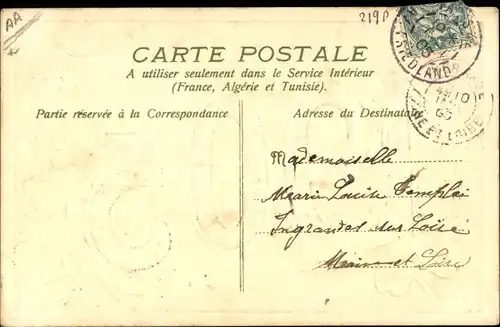 AA
2190
CARTE POSTALE
A utiliser seulement dans le Service Intérieur
(France, Algérie et Tunisie).
Partie réservée à la Correspondance
Adresse du Destinataire
FRIEDLAND
10
ET LOIRE
Mademoiselle
Marie Louise
Ingrandes sur Loire
Maine et Loire